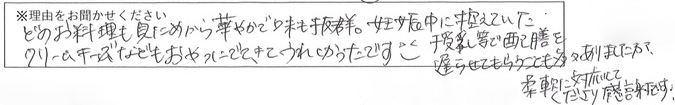 ※理由をお聞かせください
どのお料理も見ためから華やかで味も抜群。妊娠中に控えていた
クリームチーズなどもおやつにでてきてうれしかったです
授乳等で配膳を
遅らせてもらうことも多々ありましたが、
柔軟に対応して
くださり感謝です